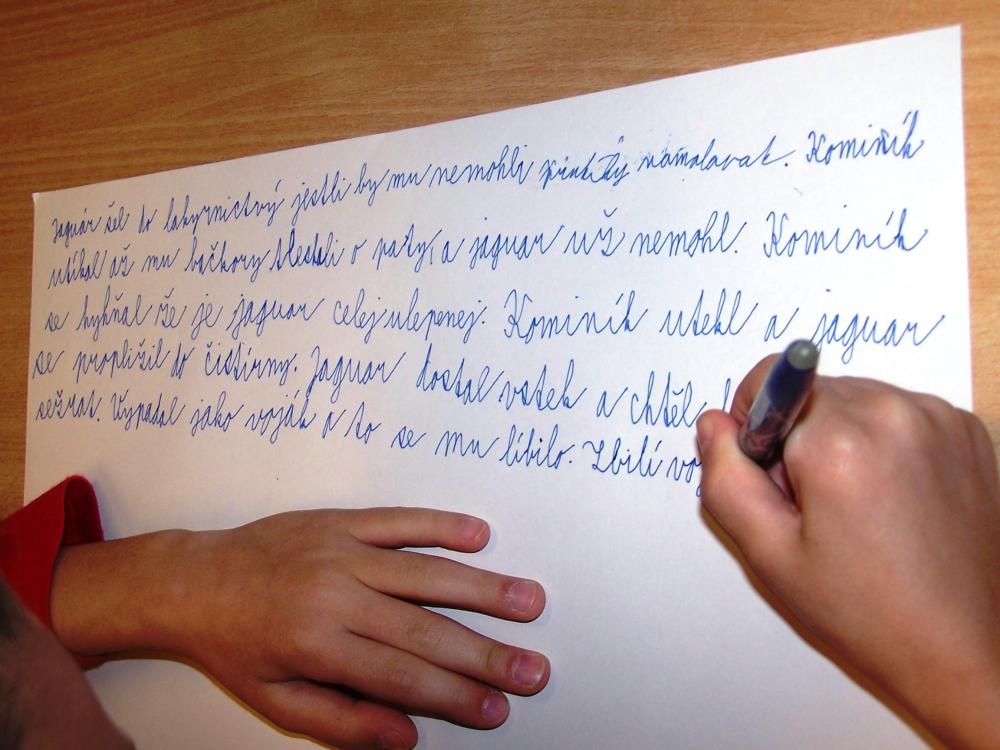 Jaguár šel do lakyrnictvý jestli by mu nemohli namalovat. Kominík
utíkal až mu bačkory tleskali o paty, a jaguar už nemohl. Kominík
se hyhňal že je jaguar celej ulepenej. Kominík utekl a jaguar
se proplížil do čistírny. Jaguar dostal vstek a chtěl
sežrat. Vypadal jako voják a to se mu líbilo. Zbilí